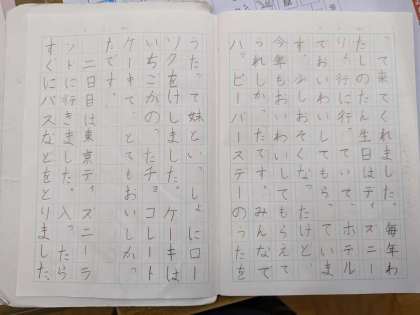 って来てくれました。毎年わ
たしのたん生日はディズニー
ントに行っていて、ホテル
でおいわいしてもらっていま
す。少しおそくなったけど、
今年もおいわいしてもらえて
うれしかったです。みんなで
ハッピーバースデーのうたを
うたって妹といっしょにロー
ソクをけしました。ケーキは
いちごがのったチョコレート
ケーキで、とてもおいしかっ
たです。
二日目は東京ディズニーラ
ントに行きました。入ったら
すぐにパスなどをとりました。